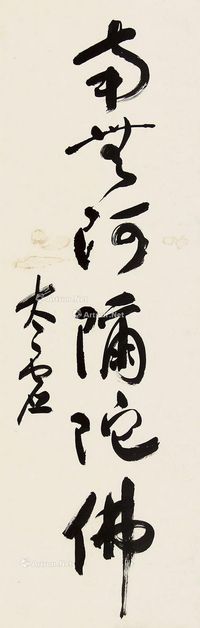 南無阿彌陀佛
太虛